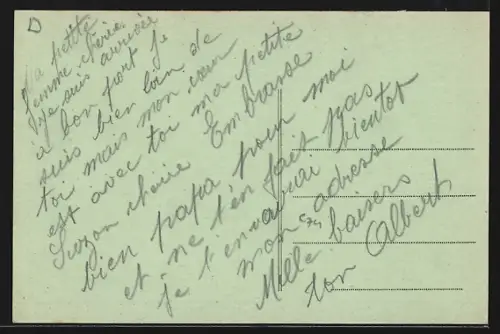 D
Ma petite
femme chérie
je suis arrivée
à bon port je
suis bien loin de
toi mais mon cœur
est avec toi ma petite
Suzon chérie Embrasse
bien papa pour moi
et ne t'en fait pas
je t'enverai bientot
mon adresse
Mille baisers
ton Albert